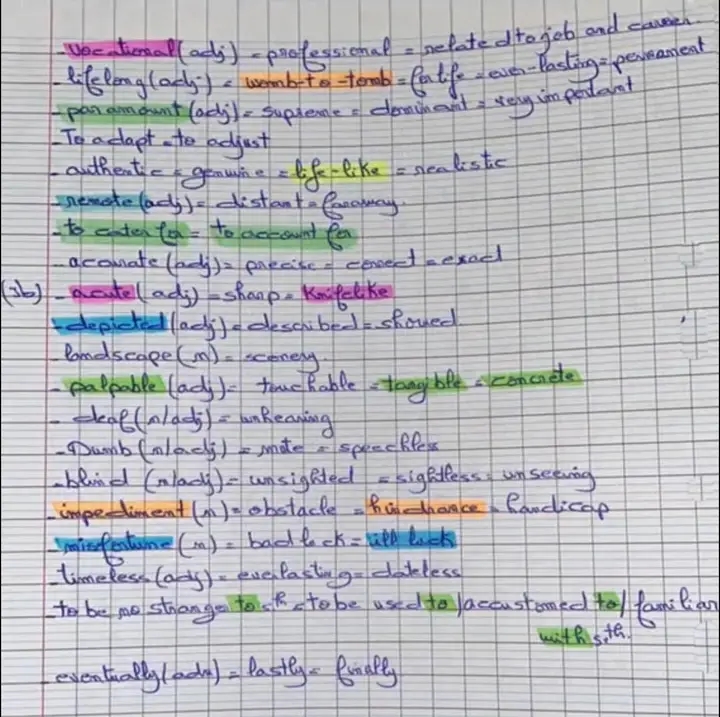 - vocational (adj) = professional = related to job and career.
- lifelong (adj) = womb-to-tomb = for life = ever-lasting = permanent
- paramount (adj) = supreme = dominant = very important
- To adapt = to adjust
- authentic = genuine = life-like = realistic
- remote (adj) = distant = faraway.
- to cater for = to account for
- accurate (adj) = precise = correct = exact
(3b) - acute (adj) = sharp = Knifelike
- depicted (adj) = described = showed
- landscape (n) = scenery.
- palpable (adj) = touchable = tangible = concrete
- deaf (n/adj) = unhearing
- Dumb (n/adj) = mute = speechless
- blind (n/adj) = unsighted = sightless = unseeing
- impediment (n) = obstacle = hindrance = handicap
- misfortune (n) = bad luck = ill luck
- timeless (adj) = everlasting = dateless
- to be no stranger to sth = to be used to / accustomed to / familiar
with sth.
- eventually (adv) = lastly = finally